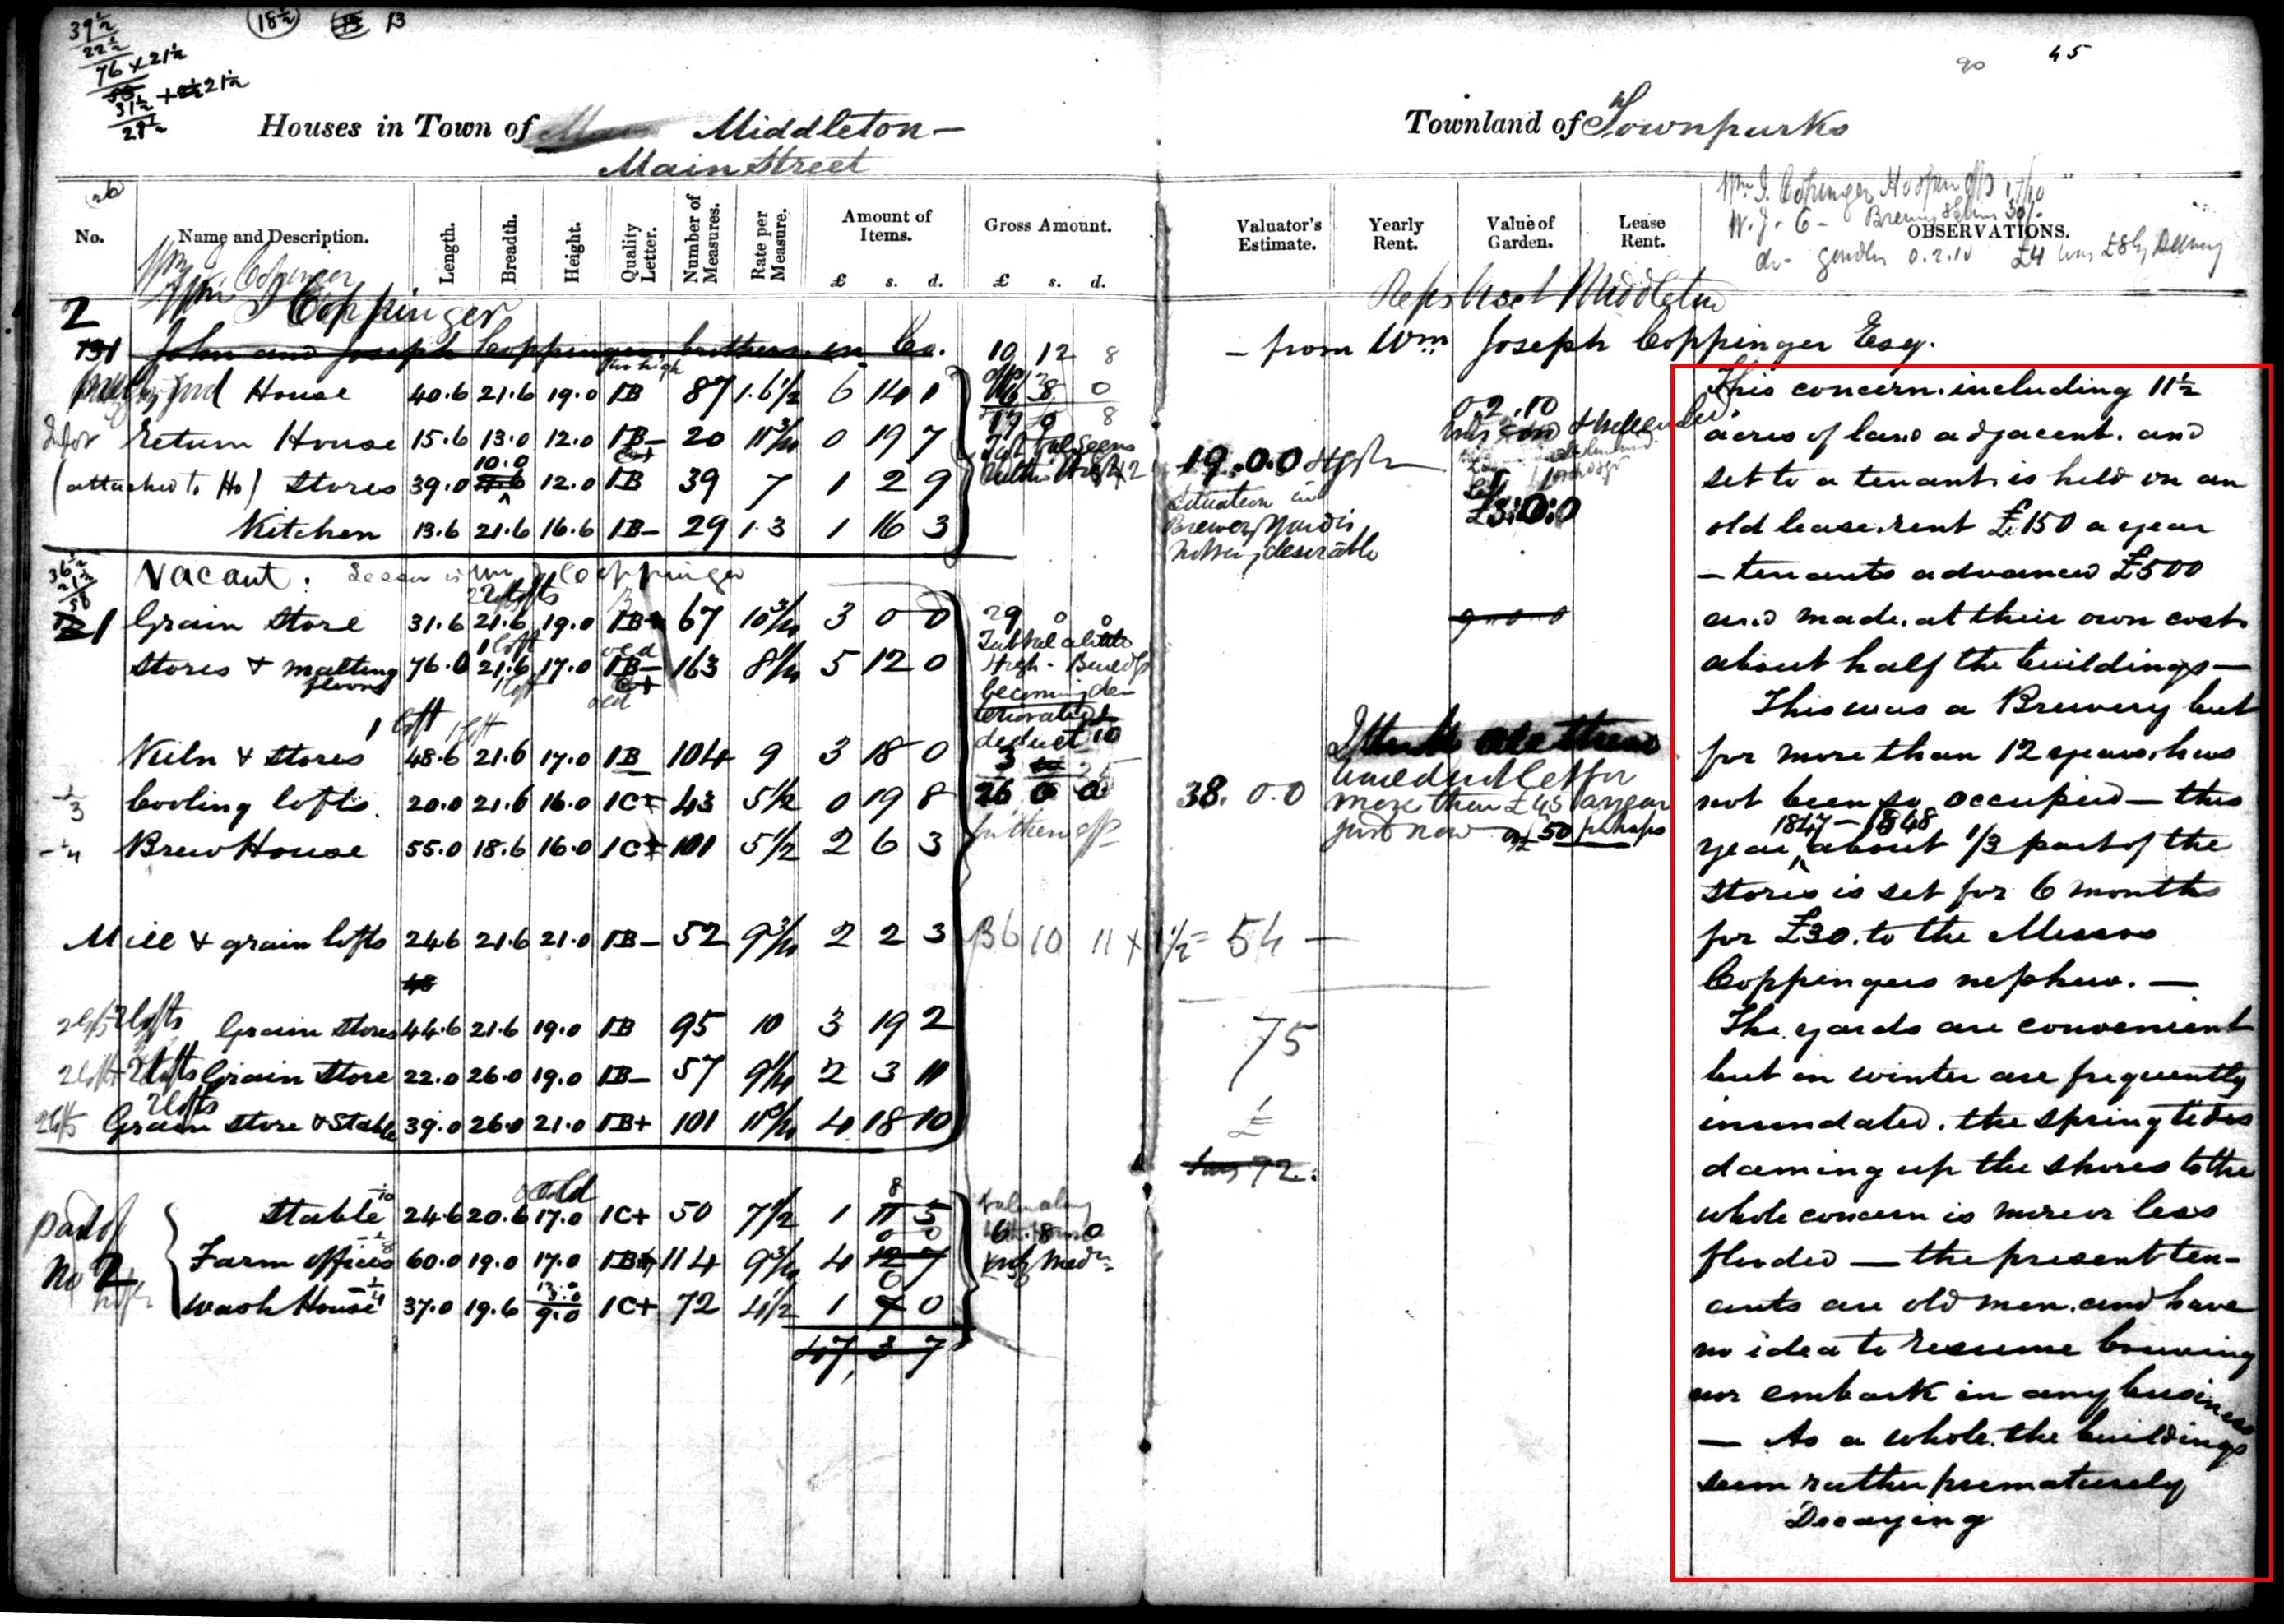 39½
22½
76 × 21½
31½ + 21½
29½
18½
13
45
90
Houses in Town of Middleton —
Main Street
Townland of Townparks
No.
Name and Description.
Length.
Breadth.
Height.
Quality Letter.
Number of Measures.
Rate per Measure.
Amount of Items.
£ s. d.
Gross Amount.
£ s. d.
Valuator's Estimate.
Yearly Rent.
Value of Garden.
Lease Rent.
OBSERVATIONS.
Wm J. Copinger
W. J. C - £4
Wm J Copinger
Wm J Coppinger
2
131 John and Joseph Coppinger brothers in Co. 10 12 8
— from Wm Joseph Coppinger Esq.
House 40.6 21.6 19.0 1B 87 1.6½ 6 14 1
Return House 15.6 13.0 12.0 1B- 20 11¾ 0 19 7
(attached to Ho) Stores 39.0 10.0 12.0 1B 39 7 1 2 9
Kitchen 13.6 21.6 16.6 1B- 29 1.3 1 16 3
19.0.0 High
Situation in
Brewery Yard is
not very desirable
0.2.10
£3:0:0
Vacant. Lessor is Wm J Coppinger
2 lofts
1 Grain Store 31.6 21.6 19.0 1B 67 10¾ 3 0 0
29 0 0
1 loft old
Stores & malting floors 76.0 21.6 17.0 1B- 163 8¼ 5 12 0
High - Buildgs
becoming de-
teriorated
deduct 10
26 0 0
1 loft
Kiln & Stores 48.6 21.6 17.0 1B 104 9 3 18 0
Cooling lofts. 20.0 21.6 16.0 1C 43 5½ 0 19 8
Brew House 55.0 18.6 16.0 1C 101 5½ 2 6 3
38.0.0
more than £45 a year
just now or £50 perhaps
Mill & grain lofts 24.6 21.6 21.0 1B- 52 9¾ 2 2 3
36 10 11 × 1½ = 54 —
48
2 lofts Grain Stores 44.6 21.6 19.0 1B 95 10 3 19 2
75
2 lofts Grain Store 22.0 26.0 19.0 1B- 57 9¼ 2 3 11
2 lofts
Grain Store & Stable 39.0 26.0 21.0 1B+ 101 11¾ 4 18 10
£
72.
old
part of
No 2
Stable 24.6 20.6 17.0 1C+ 50 7½ 1 11 5
6.8.0
Farm offices 60.0 19.0 17.0 1B+ 114 9¾ 4 12 7
Wash House 37.0 19.6 13.0 9.0 1C+ 72 4½ 1 7 0
47 3 7
This concern including 11½
acres of land adjacent. and
set to a tenant is held on an
old lease. rent £150 a year
— tenants advanced £500
and made at their own cost
about half the buildings —
This was a Brewery but
for more than 12 years has
not been so occupied — this
1847–1848
year, about 1/3 part of the
stores is set for 6 months
for £30. to the Messrs
Coppingers nephew. —
The yards are convenient
but in winter are frequently
inundated. the spring tides
daming up the shores to the
whole concern is more or less
flooded — the present ten-
ants are old men. and have
no idea to resume brewing
nor embark in any business
— As a whole. the buildings
seem rather prematurely
Decaying